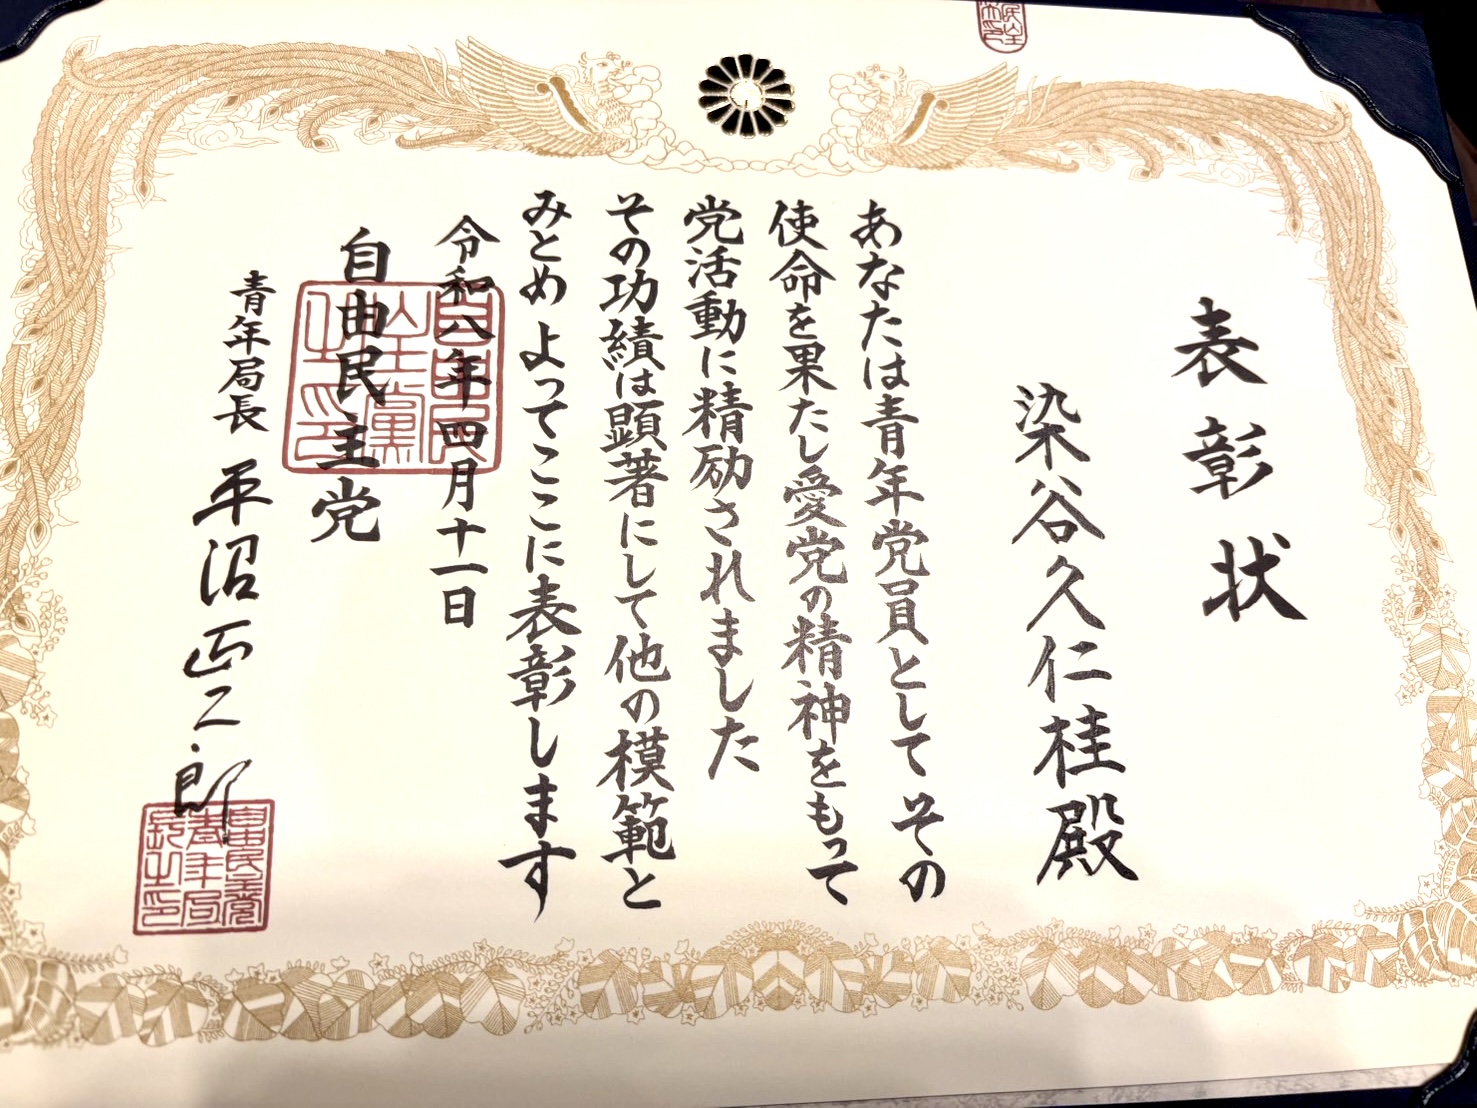 表彰状
染谷久仁桂殿
あなたは青年党員として その
使命を果たし愛党の精神をもって
党活動に精励されました
その功績は顕著にして他の模範と
みとめ よってここに表彰します
令和八年四月十一日
自由民主党
青年局長 平沼正二郎
自由民主党青年局長之印